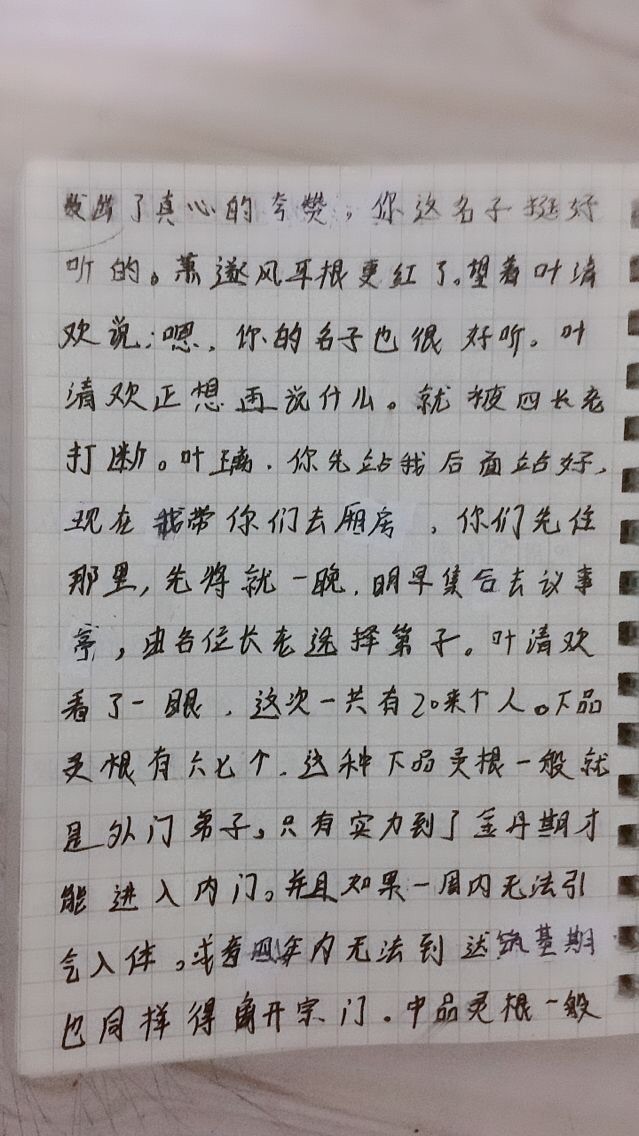 发出了真心的夸赞，你这名子挺好
听的。萧遂风耳根更红了。望着叶清
欢说：嗯，你的名子也很好听。叶
清欢正想再说什么。就被四长老
打断。叶璃，你先站我后面站好，
现在我带你们去厢房，你们先住
那里，先将就一晚，明早集合去议事
亭，由各位长老选择第子。叶清欢
看了一眼，这次一共有20来个人。下品
灵根有六七个，这种下品灵根一般就
是外门弟子。只有实力到了金丹期才
能进入内门。并且如果一周内无法引
气入体。或者四年内无法到达筑基期
也同样得离开宗门。中品灵根一般